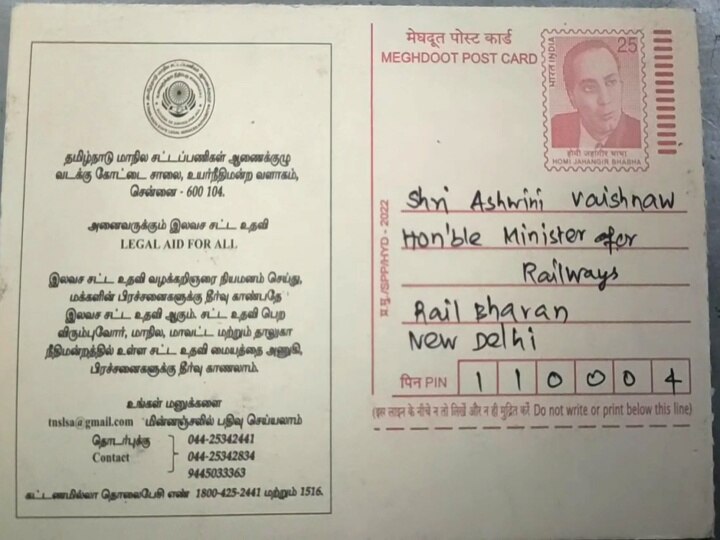 தமிழ்நாடு மாநில சட்டப்பணிகள் ஆணைக்குழு
வடக்கு கோட்டை சாலை, உயர்நீதிமன்ற வளாகம்,
சென்னை - 600 104.
அனைவருக்கும் இலவச சட்ட உதவி
LEGAL AID FOR ALL
இலவச சட்ட உதவி வழக்கறிஞரை நியமனம் செய்து,
மக்களின் பிரச்சனைகளுக்கு தீர்வு காண்பதே
இலவச சட்ட உதவி ஆகும். சட்ட உதவி பெற
விரும்புவோர், மாநில, மாவட்ட மற்றும் தாலுகா
நீதிமன்றத்தில் உள்ள சட்ட உதவி மையத்தை அணுகி,
பிரச்சனைகளுக்கு தீர்வு காணலாம்.
உங்கள் மனுக்களை
tnslsa@gmail.com மின்னஞ்சலில் பதிவு செய்யலாம்
தொடர்புக்கு 044-25342441
Contact 044-25342834
9445033363
கட்டணமில்லா தொலைபேசி எண் 1800-425-2441 மற்றும் 1516.
मेघदूत पोस्ट कार्ड
MEGHDOOT POST CARD
भारत INDIA
25
होमी जहांगीर भाभा
HOMI JAHANGIR BHABHA
प्र.मु./SPP/HYD - 2022
Shri Ashwini Vaishnaw
Hon'ble Minister for
Railways
Rail Bhavan
New Delhi
पिन PIN 1 1 0 0 0 4
(इस लाइन के नीचे न तो लिखें और न ही मुद्रित करें Do not write or print below this line)